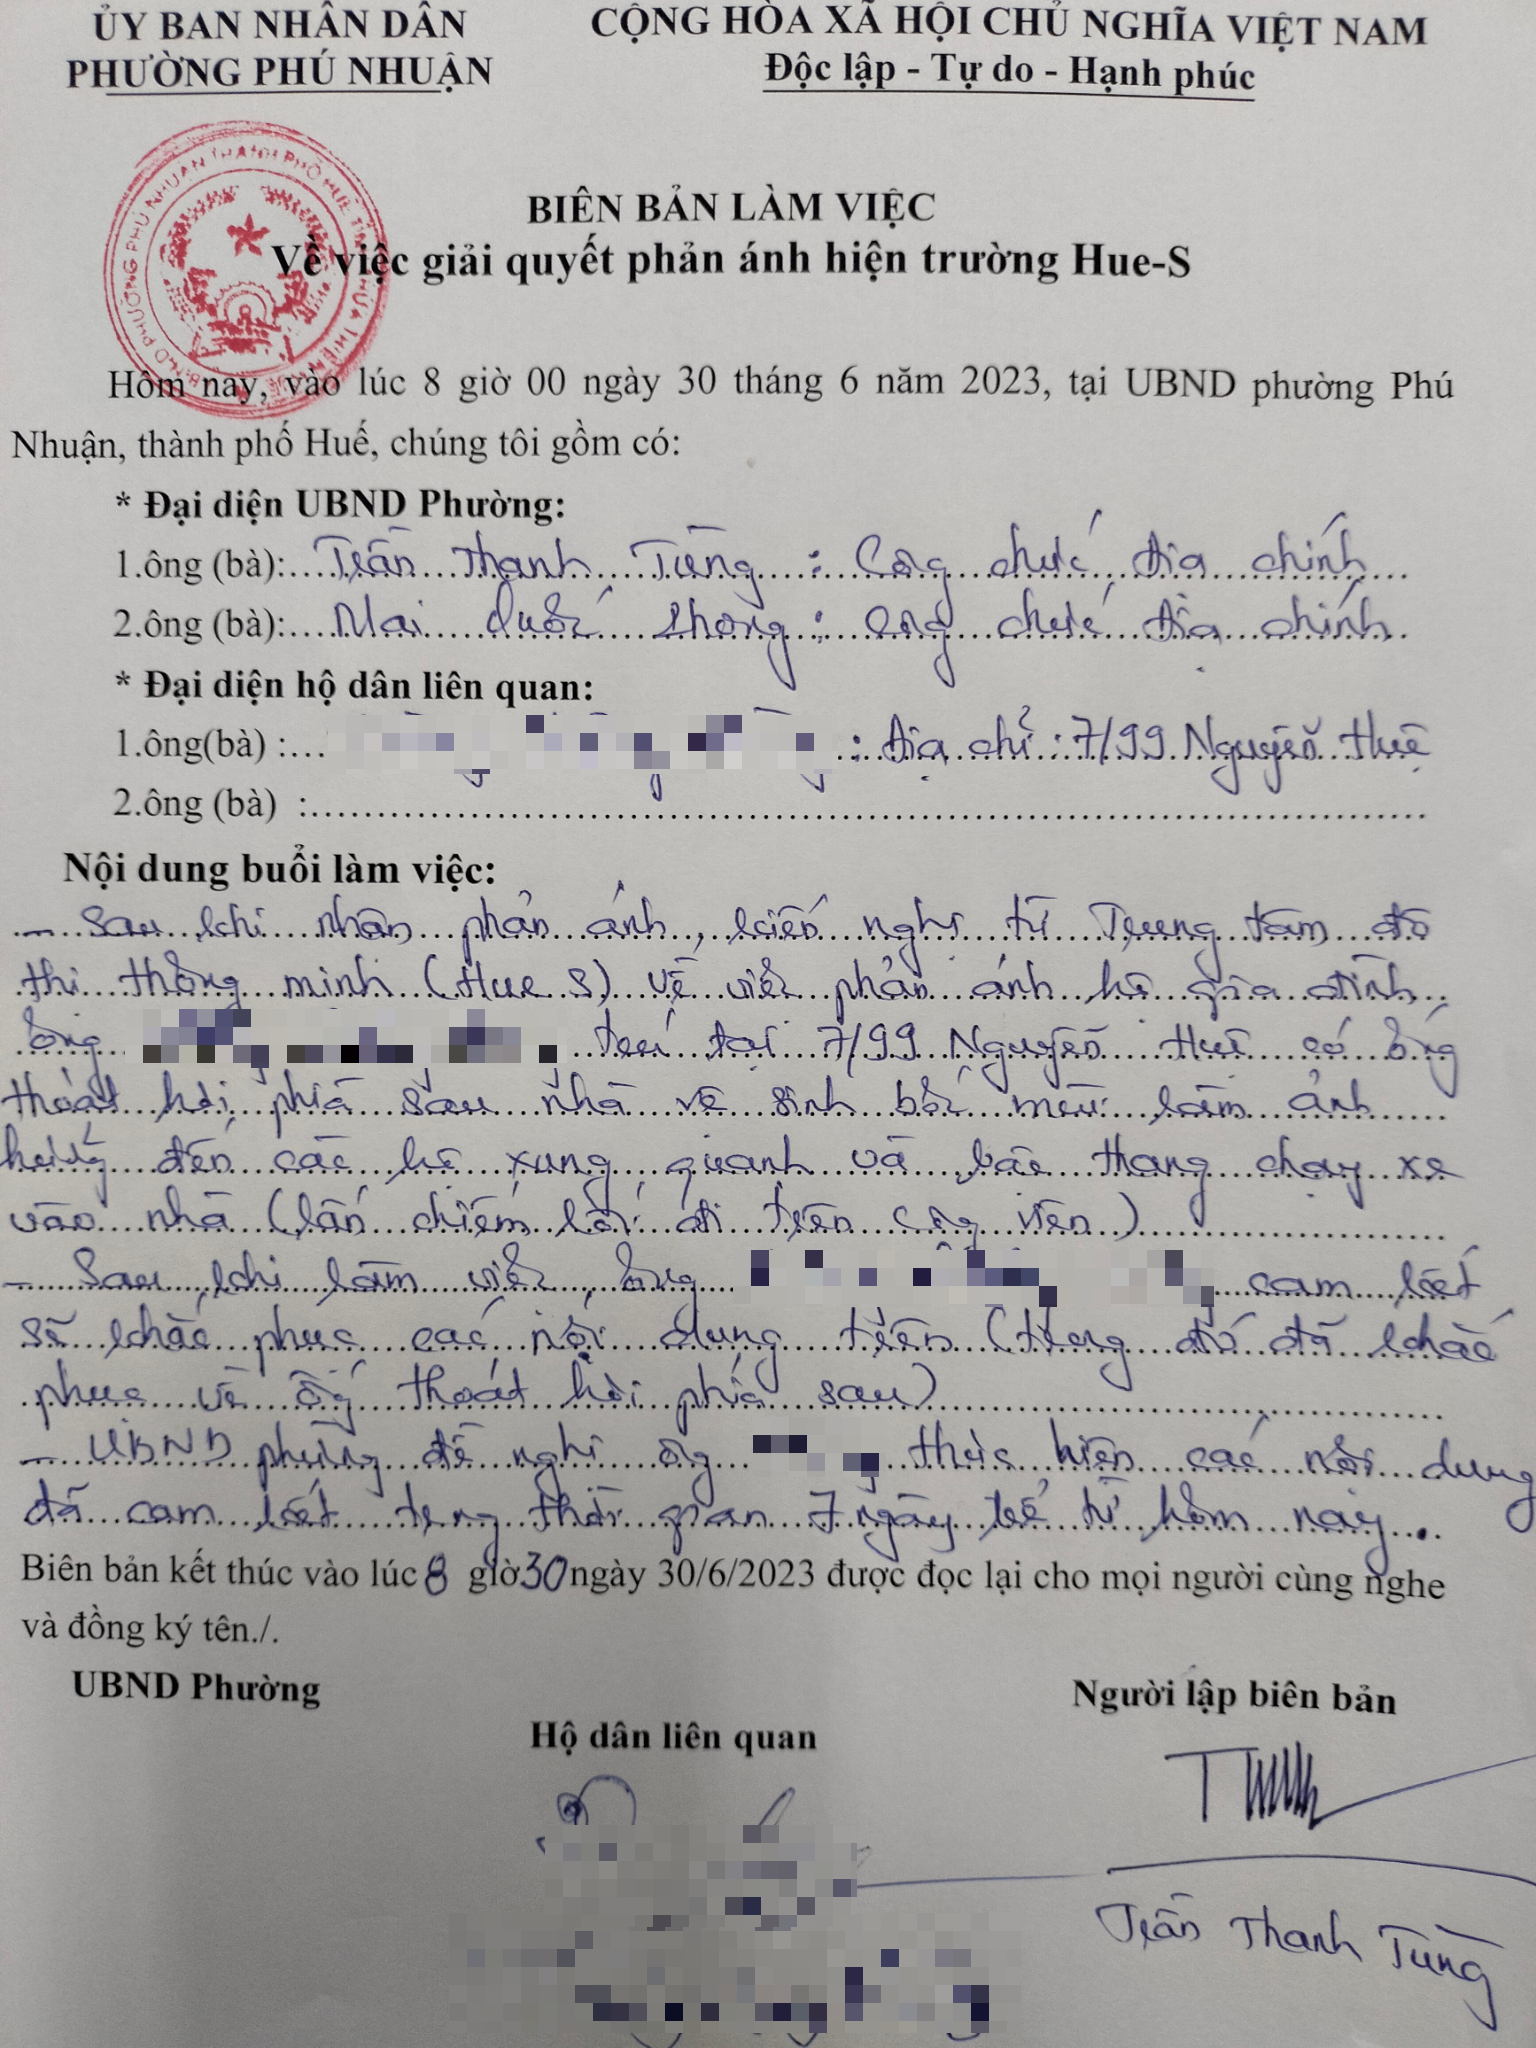 ỦY BAN NHÂN DÂN
PHƯỜNG PHÚ NHUẬN
CỘNG HÒA XÃ HỘI CHỦ NGHĨA VIỆT NAM
Độc lập - Tự do - Hạnh phúc
BIÊN BẢN LÀM VIỆC
Về việc giải quyết phản ánh hiện trường Hue-S
Hôm nay, vào lúc 8 giờ 00 ngày 30 tháng 6 năm 2023, tại UBND phường Phú
Nhuận, thành phố Huế, chúng tôi gồm có:
* Đại diện UBND Phường:
1.ông (bà): Trần Thanh Tùng : Công chức địa chính
2.ông (bà): Mai Quốc : Công chức địa chính
* Đại diện hộ dân liên quan:
1.ông(bà) : : Địa chỉ : 7/99 Nguyễn Huệ
2.ông (bà) :
Nội dung buổi làm việc:
- Sau khi nhận phản ánh, kiến nghị từ Trung tâm đô
thị thông minh (Hue S) về việc phản ánh hộ gia đình
ông trú tại 7/99 Nguyễn Huệ có ống
thoát hơi phía sau nhà vệ sinh bốc mùi làm ảnh
hưởng đến các hộ xung quanh và bắc thang chạy xe
vào nhà (lấn chiếm lối đi trên công viên)
- Sau khi làm việc, ông cam kết
sẽ khắc phục các nội dung trên (trong đó đã khắc
phục về ống thoát hơi phía sau)
- UBND phường đề nghị ông thực hiện các nội dung
đã cam kết trong thời gian 7 ngày kể từ hôm nay.
Biên bản kết thúc vào lúc 8 giờ 30 ngày 30/6/2023 được đọc lại cho mọi người cùng nghe
và đồng ký tên./.
UBND Phường
Hộ dân liên quan
Người lập biên bản
Trần Thanh Tùng